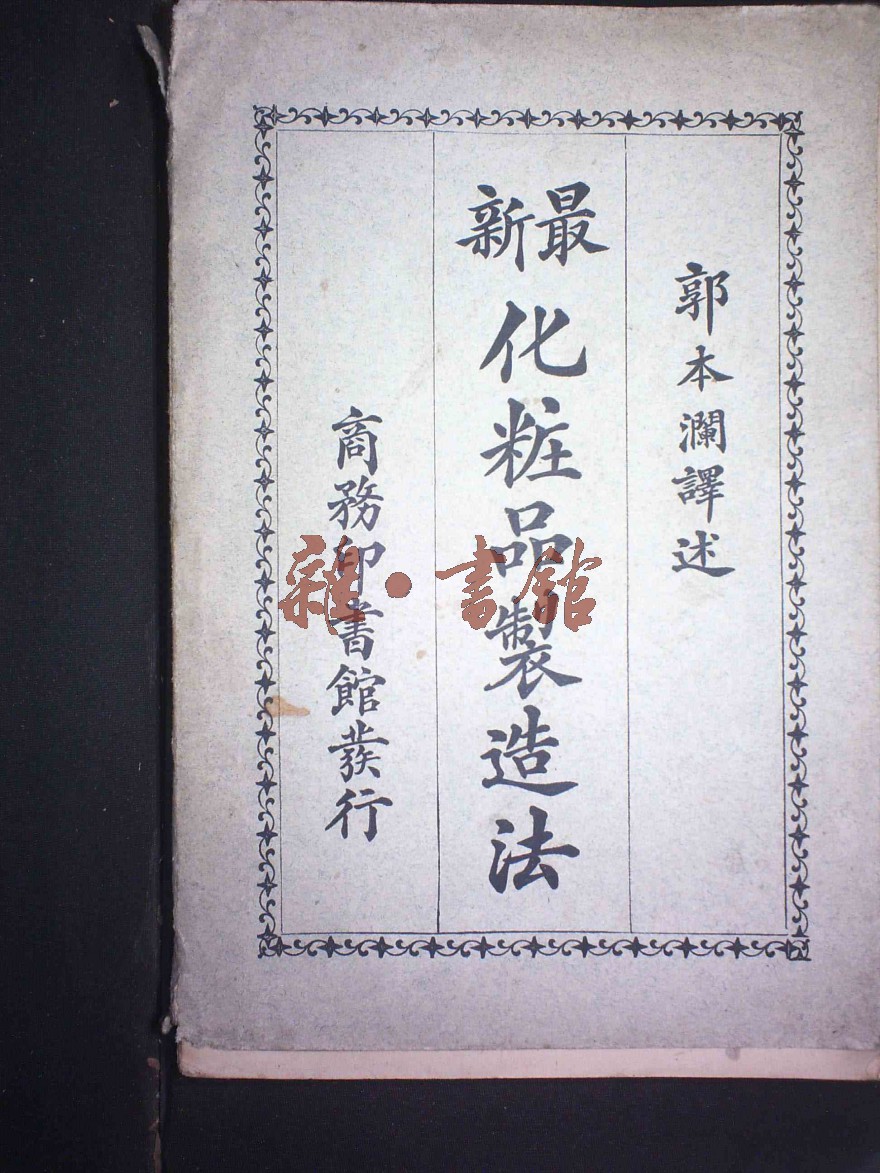 郭本瀾譯述
最新
化粧品製造法
商務印書館發行
雜·書館